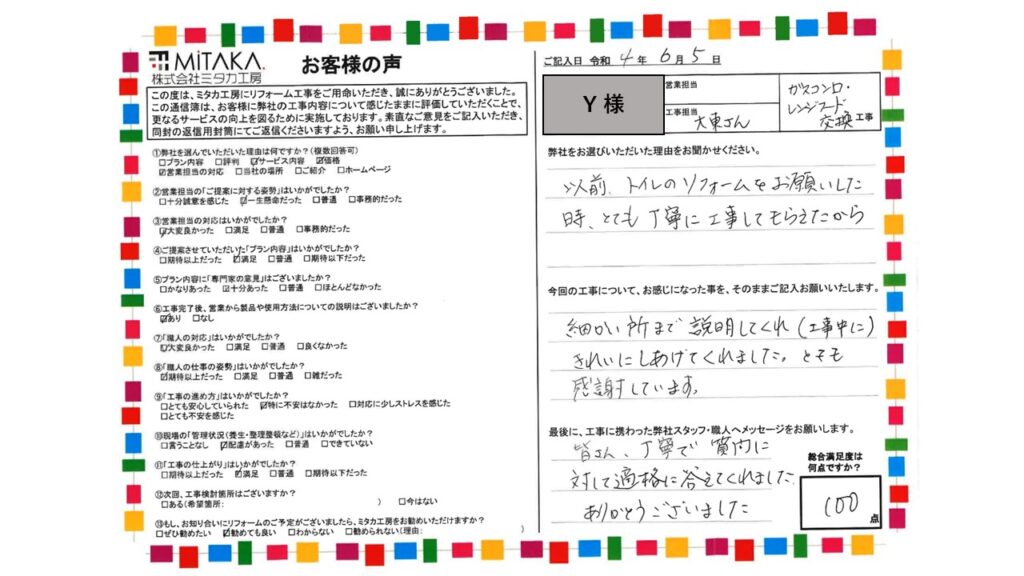 MiTAKA.
株式会社ミタカ工房
お客様の声
この度は、ミタカ工房にリフォーム工事をご用命いただき、誠にありがとうございました。
この通信簿は、お客様に弊社の工事内容について感じたままに評価していただくことで、
更なるサービスの向上を図るために実施しております。素直なご意見をご記入いただき、
同封の返信用封筒にてご返信くださいますよう、お願い申し上げます。
①弊社を選んでいただいた理由は何ですか?(複数回答可)
□プラン内容 □評判 ☑サービス内容 ☑価格
☑営業担当の対応 □当社の場所 □ご紹介 □ホームページ
②営業担当の「ご提案に対する姿勢」はいかがでしたか?
□十分誠意を感じた ☑一生懸命だった □普通 □事務的だった
③営業担当の対応はいかがでしたか?
☑大変良かった □満足 □普通 □事務的だった
④ご提案させていただいた「プラン内容」はいかがでしたか?
□期待以上だった ☑満足 □普通 □期待以下だった
⑤プラン内容に「専門家の意見」はございましたか?
□かなりあった ☑十分あった □普通 □ほとんどなかった
⑥工事完了後、営業から製品や使用方法についての説明はございましたか?
☑あり □なし
⑦「職人の対応」はいかがでしたか?
☑大変良かった □満足 □普通 □良くなかった
⑧「職人の仕事の姿勢」はいかがでしたか?
☑期待以上だった □満足 □普通 □雑だった
⑨「工事の進め方」はいかがでしたか?
□とても安心していられた ☑特に不安はなかった □対応に少しストレスを感じた
□とても不安を感じた
⑩現場の「管理状況(養生・整理整頓など)」はいかがでしたか?
□言うことなし ☑配慮があった □普通 □できていない
⑪「工事の仕上がり」はいかがでしたか?
□期待以上だった ☑満足 □普通 □期待以下だった
⑫次回、工事検討箇所はございますか?
□ある(希望箇所: ) □今はない
⑬もし、お知り合いにリフォームのご予定がございましたら、ミタカ工房をお勧めいただけますか?
□ぜひ勧めたい ☑勧めても良い □わからない □勧められない(理由: )
ご記入日 令和 4 年 6 月 5 日
Y 様
営業担当
工事担当 大東さん
ガスコンロ・
レンジフード
交換 工事
弊社をお選びいただいた理由をお聞かせください。
以前、トイレのリフォームをお願いした
時、とても丁寧に工事してもらえたから
今回の工事について、お感じになった事を、そのままご記入お願いいたします。
細かい所まで説明してくれ(工事中に)
きれいにしあげてくれました。とても
感謝しています。
最後に、工事に携わった弊社スタッフ・職人へメッセージをお願いします。
皆さん、丁寧で質問に
対して適格に答えてくれました
ありがとうございました
総合満足度は
何点ですか?
100 点